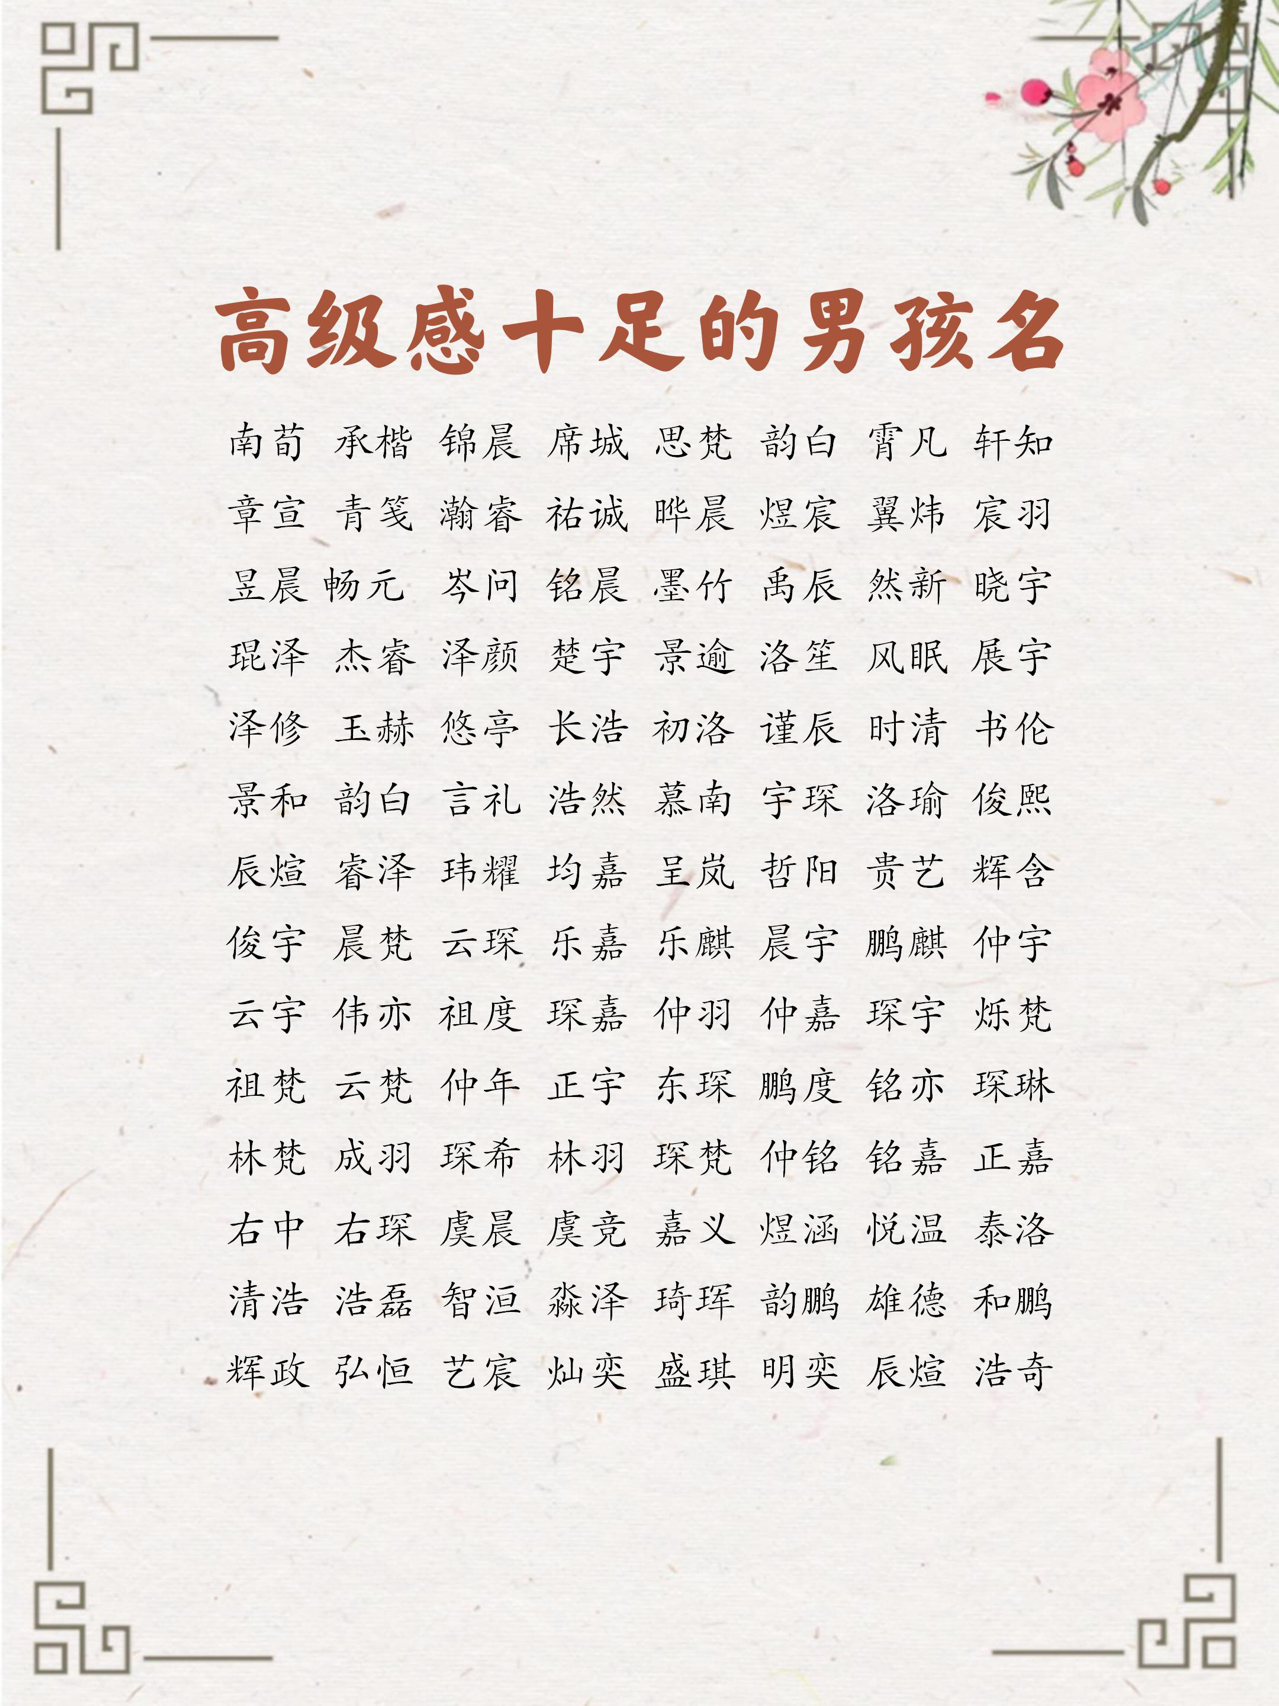 高级感十足的男孩名
南荀 承楷 锦晨 席城 思梵 韵白 霄凡 轩知
章宣 青笺 瀚睿 祐诚 晔晨 煜宸 翼炜 宸羽
昱晨 畅元 岑问 铭晨 墨竹 禹辰 然新 晓宇
琨泽 杰睿 泽颜 楚宇 景逾 洛笙 风眠 展宇
泽修 玉赫 悠亭 长浩 初洛 谨辰 时清 书伦
景和 韵白 言礼 浩然 慕南 宇琛 洛瑜 俊熙
辰煊 睿泽 玮耀 均嘉 呈岚 哲阳 贵艺 辉含
俊宇 晨梵 云琛 乐嘉 乐麒 晨宇 鹏麒 仲宇
云宇 伟亦 祖度 琛嘉 仲羽 仲嘉 琛宇 烁梵
祖梵 云梵 仲年 正宇 东琛 鹏度 铭亦 琛琳
林梵 成羽 琛希 林羽 琛梵 仲铭 铭嘉 正嘉
右中 右琛 虞晨 虞竞 嘉义 煜涵 悦温 泰洛
清浩 浩磊 智洹 淼泽 琦珲 韵鹏 雄德 和鹏
辉政 弘恒 艺宸 灿奕 盛琪 明奕 辰煊 浩奇